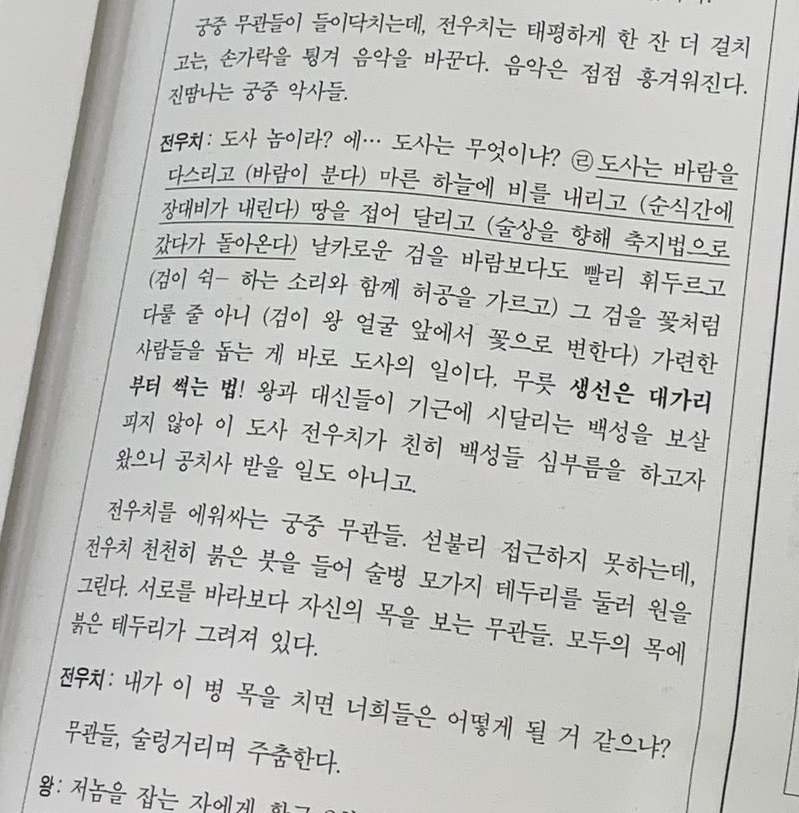 궁중 무관들이 들이닥치는데, 전우치는 태평하게 한 잔 더 걸치
고는, 손가락을 튕겨 음악을 바꾼다. 음악은 점점 흥겨워진다.
진땀나는 궁중 악사들.
전우치: 도사 놈이라? 에… 도사는 무엇이냐? ㉣도사는 바람을
다스리고 (바람이 분다) 마른 하늘에 비를 내리고 (순식간에
장대비가 내린다) 땅을 접어 달리고 (술상을 향해 축지법으로
갔다가 돌아온다) 날카로운 검을 바람보다도 빨리 휘두르고
(검이 쉭― 하는 소리와 함께 허공을 가르고) 그 검을 꽃처럼
다룰 줄 아니 (검이 왕 얼굴 앞에서 꽃으로 변한다) 가련한
사람들을 돕는 게 바로 도사의 일이다. 무릇 생선은 대가리
부터 썩는 법! 왕과 대신들이 기근에 시달리는 백성을 보살
피지 않아 이 도사 전우치가 친히 백성들 심부름을 하고자
왔으니 공치사 받을 일도 아니고.
전우치를 에워싸는 궁중 무관들. 섣불리 접근하지 못하는데,
전우치 천천히 붉은 붓을 들어 술병 모가지 테두리를 둘러 원을
그린다. 서로를 바라보다 자신의 목을 보는 무관들. 모두의 목에
붉은 테두리가 그려져 있다.
전우치: 내가 이 병 목을 치면 너희들은 어떻게 될 거 같으냐?
무관들, 술렁거리며 주춤한다.
왕: 저놈을 잡는 자에게 황금